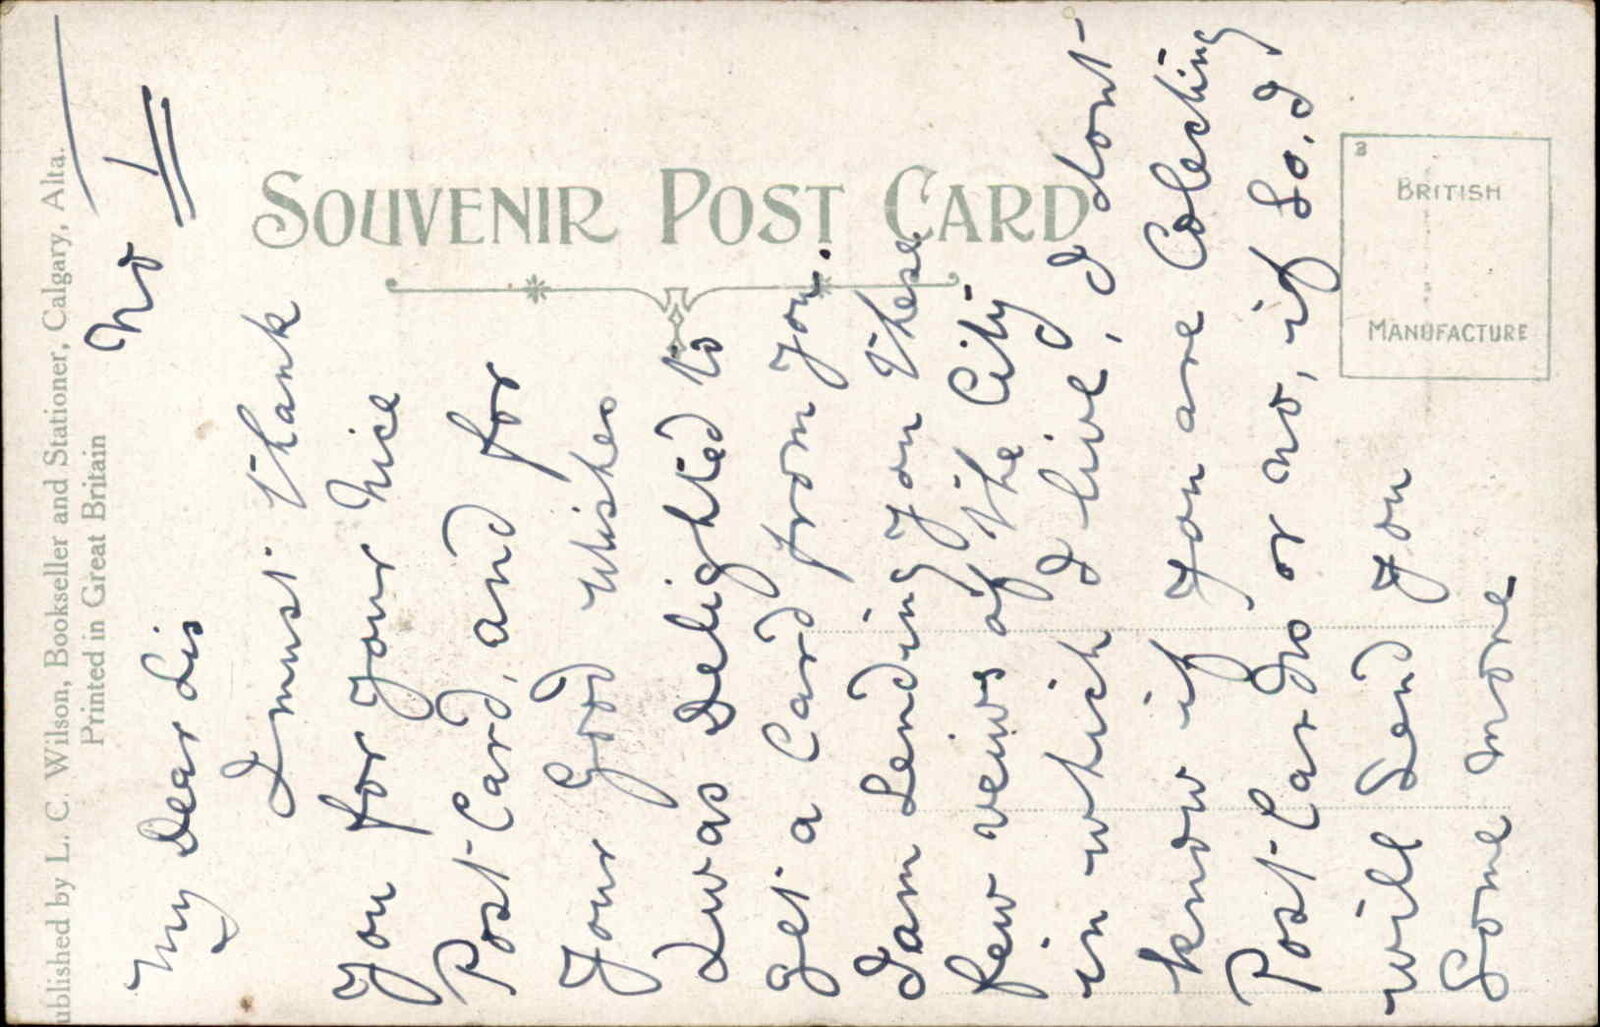 Published by L. C. Wilson, Bookseller and Stationer, Calgary, Alta.
Printed in Great Britain
SOUVENIR POST CARD
3
BRITISH
MANUFACTURE
No 1
My Dear Lis
I must thank
You for Your Nice
Post Card, and for
Your Good Wishes
I was Delighted to
get a Card from You.
I am Sending You these
few veiws of the City
in which I live, I dont
know if You are Colecting
Post Cards or no, if So, I
will Send You
Some more